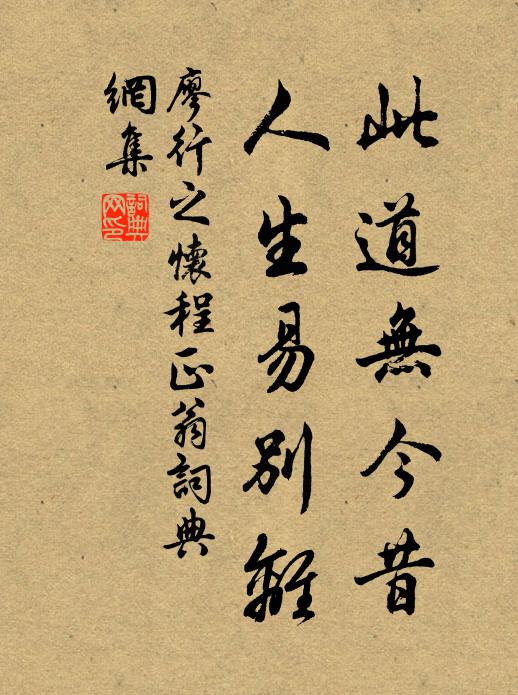 此道無今昔
人生易別離
廖行之懷程正翁詞典
網集
詞典
网印